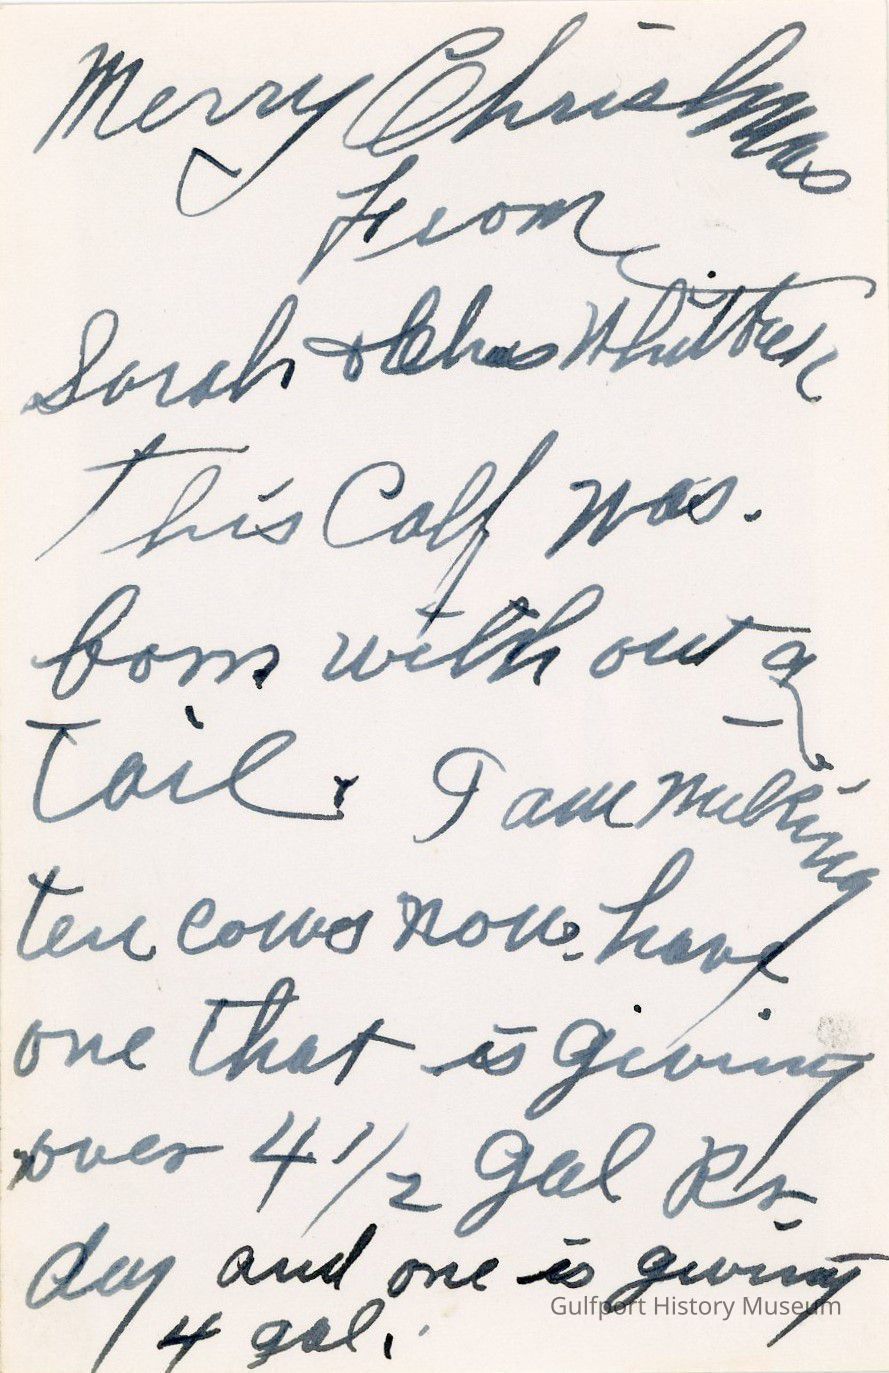 Merry Christmas
From
Sarah & Chas
This Calf was.
born with out a
Tail. I am milking
ten cows now. have
one that is giving
over 4 1/2 gal Pr
day and one is giving
Gulfport History Museum
4 gal.